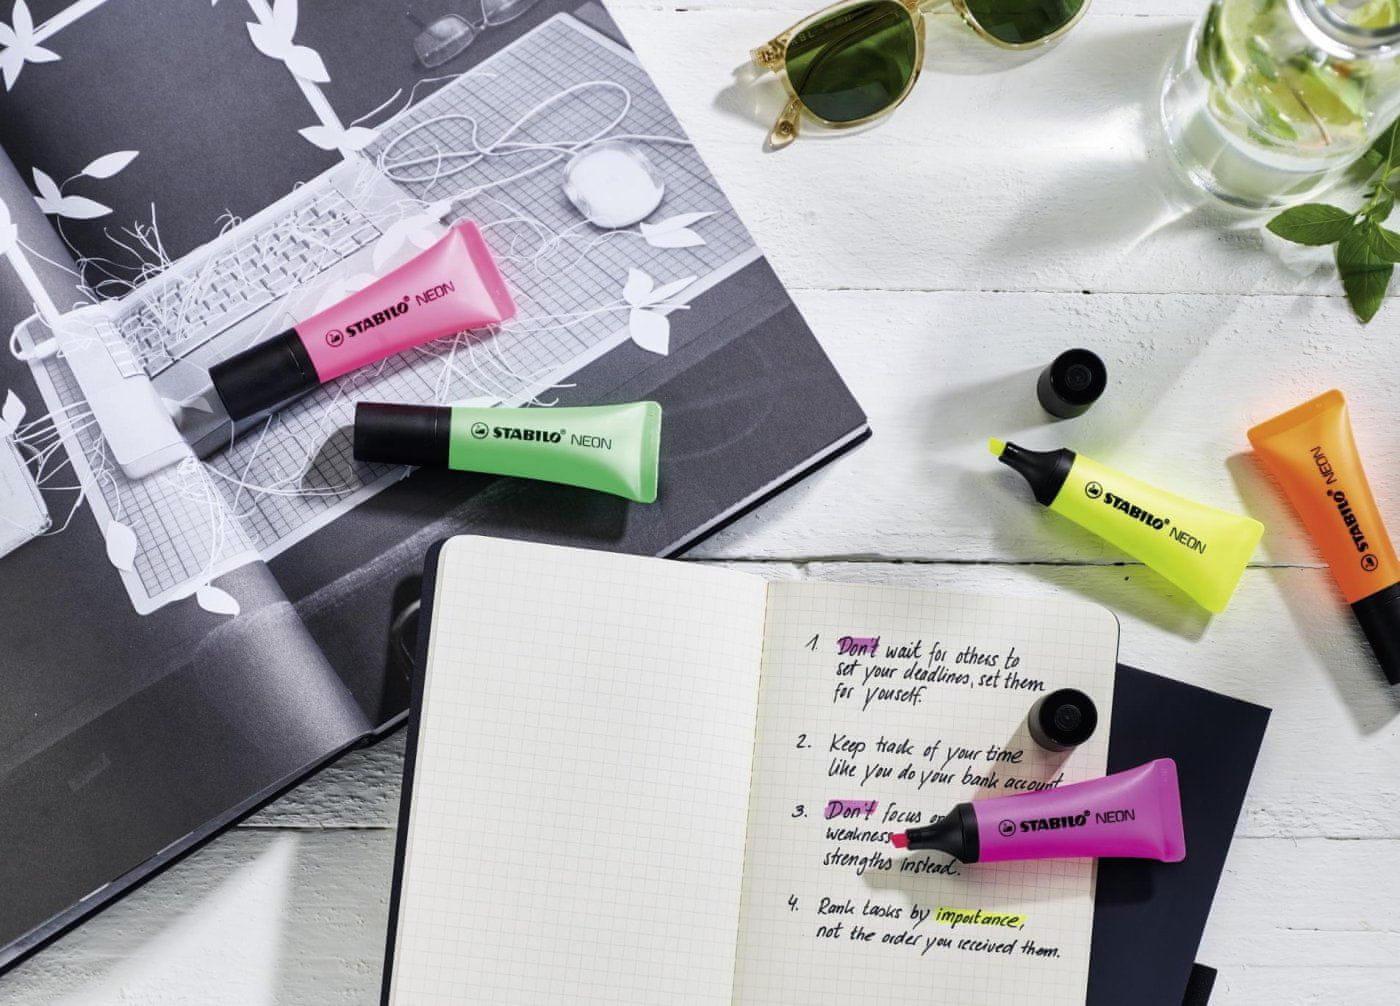 STABILO® NEON
STABILO® NEON
STABILO® NEON
STABILO® NEON
1. Don't wait for others to
set your deadlines, set them
for youself.
2. Keep track of your time
like you do your bank account
3. Don't focus
weakness
strengths instead.
4. Rank tasks by importance,
not the order you received them.
STABILO® NEON